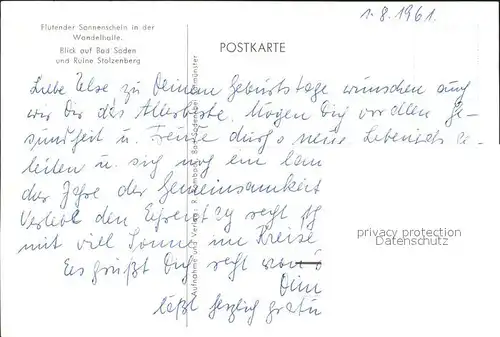 1.8.1961.
Flutender Sonnenschein in der
Wandelhalle.
Blick auf Bad Soden
und Ruine Stolzenberg
POSTKARTE
Liebe Else zu Deinem Geburtstage wünschen auch
wir Dir das Allerbeste. Mögen Dich vor allem Ge-
sundheit u. Freude durchs neue Lebensjahr be-
leiten u. sich noch ein
der Jahre der Gemeinsamkeit
Verlebe den Ehrentag recht
mit viel Sonne im Kreise
Es grüßt Dich recht
Dein
läßt herzlich
Aufnahme und Verlag: R.
privacy protection
Datenschutz